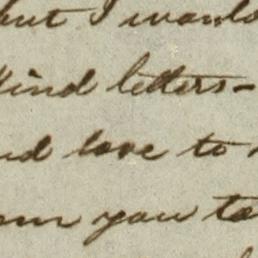 but I would
kind letters-
and love to
you to